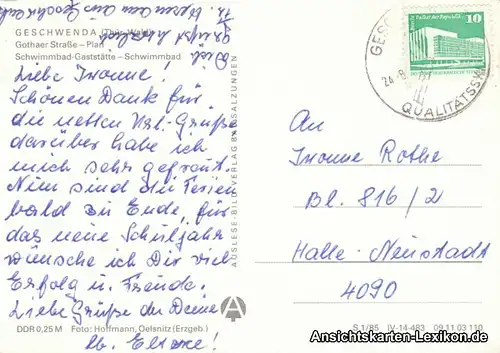 GESCHWENDA (Thür. Wald)
Gothaer Straße – Plan
Schwimmbad-Gaststätte – Schwimmbad
Liebe Ivonne!
Schönen Dank für
die netten Url.-Grüße
darüber habe ich
mich sehr gefreut.
Nun sind die Ferien
bald zu Ende, für
das neue Schuljahr
wünsche ich Dir viel
Erfolg u. Freude.
Liebe Grüße der Deine
DDR 0,25 M Foto: Hoffmann, Oelsnitz (Erzgeb.)
AUSLESE-BILD-VERLAG BAD SALZUNGEN
Palast der Republik
10
DDR
QUALITÄTSS
An
Ivonne Rothe
Bl. 816/2
Halle-Neustadt
4090
S 1/85 IV-14-483 09 11 03 110
Ansichtskarten-Lexikon.de